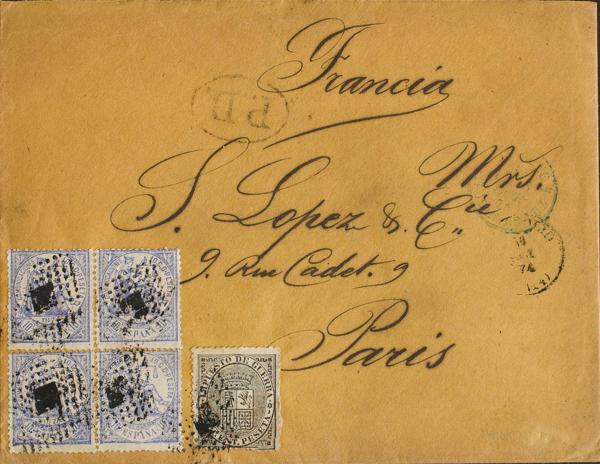 Francia
P.D.
Mrs.
S. Lopez & Cie
9. Rue Cadet. 9
Paris
74
IMPUESTO DE GUERRA